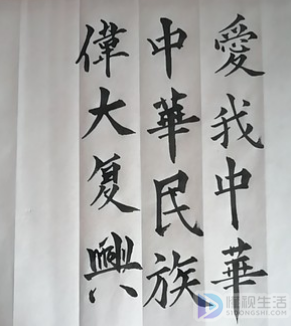 愛我中華
中華民族
偉大复興
懂视生活
SIDONGSHI.COM